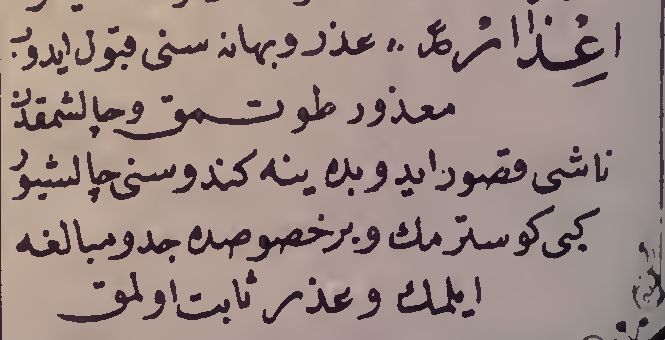 اِعْذَارْ عذر و بهانه سنی قبول ایدوب
معذور طوتمق و چالشمقدن
ناشی قصور ایدوبده ینه کندوسنی چالشیور
کبی کوسترمك و بر خصوصده جد و مبالغه
ایلمك و عذر ثابت اولمق